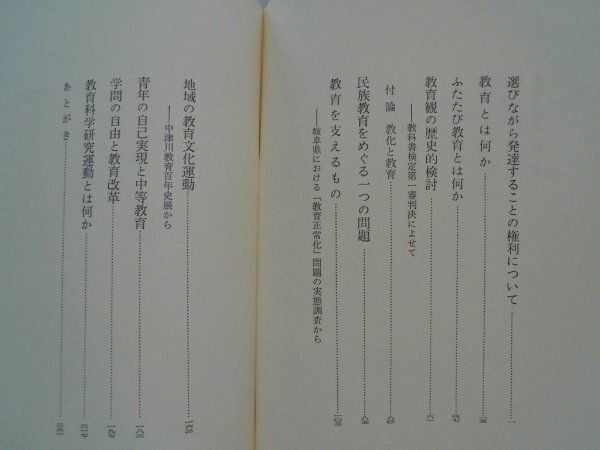 選びながら発達することの権利について……一
教育とは何か……
ふたたび教育とは何か……四七
教育観の歴史的検討……六一
――教科書検定第一審判決によせて
付論 教化と教育……八〇
民族教育をめぐる一つの問題……八五
教育を支えるもの……一〇三
――岐阜県における「教育正常化」問題の実態調査から
地域の教育文化運動……一六三
――中津川教育百年史展から
青年の自己実現と中等教育……一八三
学問の自由と教育改革……一九七
教育科学研究運動とは何か……二一七
あとがき……